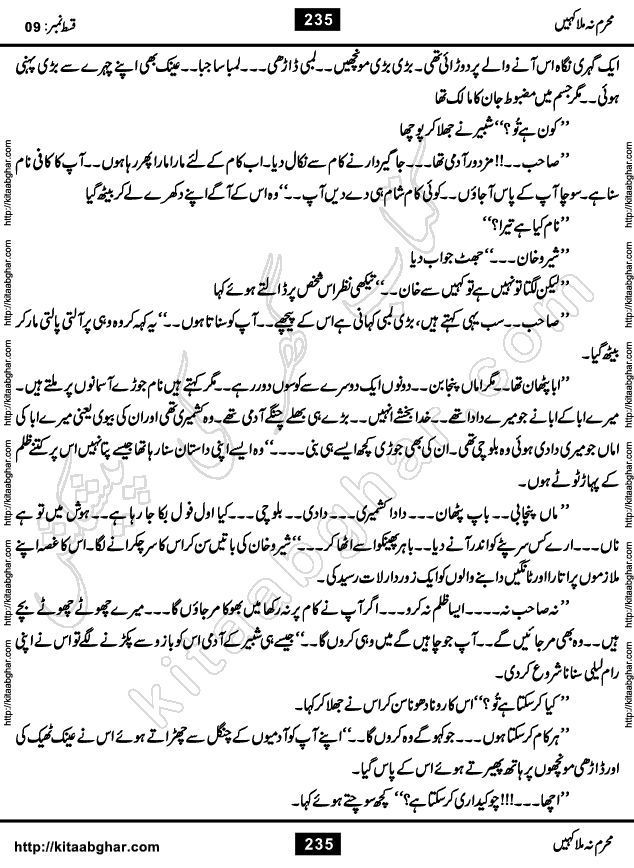 محرم نہ ملا کہیں
235
قسط نمبر: 09
ایک گہری نگاہ اس آنے والے پر دوڑائی تھی۔ بڑی بڑی مونچھیں۔۔لمبی ڈاڑھی۔۔۔لمبا سا جبا۔۔عینک بھی اپنے چہرے سے بڑی پہنی
ہوئی۔۔مگر جسم میں مضبوط جان کا مالک تھا
’’کون ہے تُو؟‘‘شبیر نے جھلا کر پوچھا
’’صاحب۔۔!!مزدور آدمی تھا۔۔۔جاگیردار نے کام سے نکال دیا۔اب کام کے لئے مارا مارا پھر رہا ہوں۔۔آپ کا کافی نام
سنا ہے۔سوچا آپ کے پاس آجاؤں۔۔کوئی کام شام ہی دے دیں آپ۔۔‘‘وہ اس کے آگے اپنے دکھرے لے کر بیٹھ گیا
’’نام کیا ہے تیرا؟‘‘
’’شیرو خان۔۔۔‘‘جھٹ جواب دیا
’’لیکن لگتا تو نہیں ہے تو کہیں سے خان۔۔‘‘تیکھی نظر اس شخص پر ڈالتے ہوئے کہا
’’صاحب۔۔سب یہی کہتے ہیں، بڑی لمبی کہانی ہے اس کے پیچھے۔۔آپ کو سناتا ہوں۔۔‘‘یہ کہہ کر وہ وہی پر آلتی پالتی مار کر
بیٹھ گیا۔
’’ابا پٹھان تھا۔۔مگر اماں پنجابن۔۔دونوں ایک دوسرے سے کوسوں دور رہے۔۔مگر کہتے ہیں نام جوڑے آسمانوں پر ملتے ہیں۔
میرے ابا کے ابا نے جو میرے دادا تھے۔۔خدا بخشے انہیں۔۔بڑے ہی بھلے چنگے آدمی تھے۔وہ کشمیری تھی اور ان کی بیوی یعنی میرے ابا کی
اماں جو میری دادی ہوئی وہ بلوچی تھی۔ان کی بھی جوڑی کچھ ایسے ہی بنی۔۔۔۔‘‘وہ ایسے اپنی داستان سنا رہا تھا جیسے پتا نہیں اس پر کتنے ظلم
کے پہاڑ ٹوٹے ہوں۔
’’ماں پنجابی۔۔باپ پٹھان۔۔۔دادا کشمیری۔۔۔دادی۔۔بلوچی۔۔۔کیا اول فول بکا جا رہا ہے۔۔ہوش میں تو ہے
ناں۔۔۔ارے کس سرپٹے کو اندر آنے دیا۔۔باہر پھینکو اسے اٹھا کر۔۔۔‘‘شیرو خان کی باتیں سن کر اس کا سر چکرانے لگا۔اس کا غصہ اپنے
ملازموں پر اتارا اور ٹانگیں دابنے والوں کو ایک زوردار لات رسید کی۔
’’نہ صاحب نہ۔۔۔۔ایسا ظلم نہ کرو۔۔۔اگر آپ نے کام پر نہ رکھا میں بھوکا مر جاؤں گا۔۔۔میرے چھوٹے چھوٹے بچے
ہیں۔۔وہ بھی مر جائیں گے۔۔آپ جو چاہیں گے میں وہی کروں گا۔۔‘‘جیسے ہی شبیر کے آدمی اس کو بازو سے پکڑنے لگے تو اس نے اپنی
رام لیلی سنانا شروع کر دی۔
’’کیا کر سکتا ہے تُو؟‘‘اس کا رونا دھونا سن کر اس نے جھلا کر کہا۔
’’ہر کام کر سکتا ہوں۔۔۔جو کہو گے وہ کروں گا۔۔‘‘اپنے آپ کو آدمیوں کے چنگل سے چھڑاتے ہوئے اس نے عینک ٹھیک کی
اور ڈاڑھی مونچھوں پر ہاتھ پھیرتے ہوئے اس کے پاس گیا۔
’’اچھا۔۔۔!!!چوکیداری کر سکتا ہے؟‘‘کچھ سوچتے ہوئے کہا۔
http://kitaabghar.com
http://kitaabghar.com
http://kitaabghar.com
http://kitaabghar.com
http://kitaabghar.com
http://kitaabghar.com
http://kitaabghar.com
http://kitaabghar.com
http://kitaabghar.com
http://kitaabghar.com
http://kitaabghar.com
http://kitaabghar.com
کتاب گھر کی پیشکش
kitaabghar.com
محرم نہ ملا کہیں
235
http://kitaabghar.com